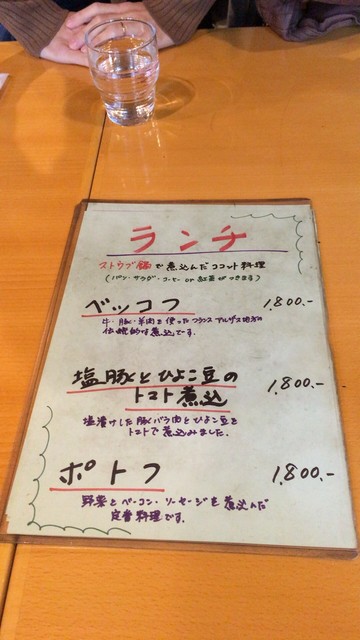 ランチ
ストウブ鍋で煮込んだココット料理
(パン・サラダ・コーヒー or 紅茶がつきます)
ベッコフ 1,800.-
牛・豚・羊肉を使ったフランスアルザス地方の
伝統的な煮込です。
塩豚とひよこ豆の
トマト煮込 1,800.-
塩漬けした豚バラ肉とひよこ豆を
トマトで煮込みました。
ポトフ 1,800.-
野菜とベーコン・ソーセージを煮込んだ
定番料理です。